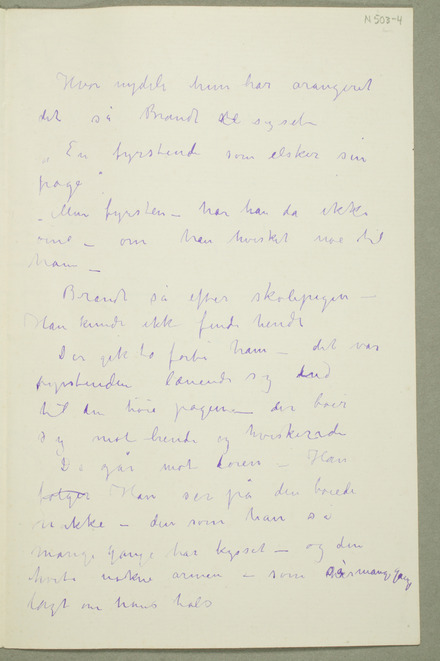 N 503-4
Hvor nydeli hun har arangeret
det så Brandt sysel
„En fyrstinde som elsker sin
page"
„Men fyrsten – har han da ikke
øine – om han hvisket noe til
ham –
Brandt så efter skolepigen –
Han kunde ikke finde hende
Der gik to forbi ham – det var
fyrstinden lænende sig ind
til den høie pagen der bøier
sig mot hende og hviskende
De går mot døren – Han
følger Han ser på den bøiede
nakke – den som han så
mange gange har kysset – og den
hvite nakne armen – som så mang gang
lagt om hans hals